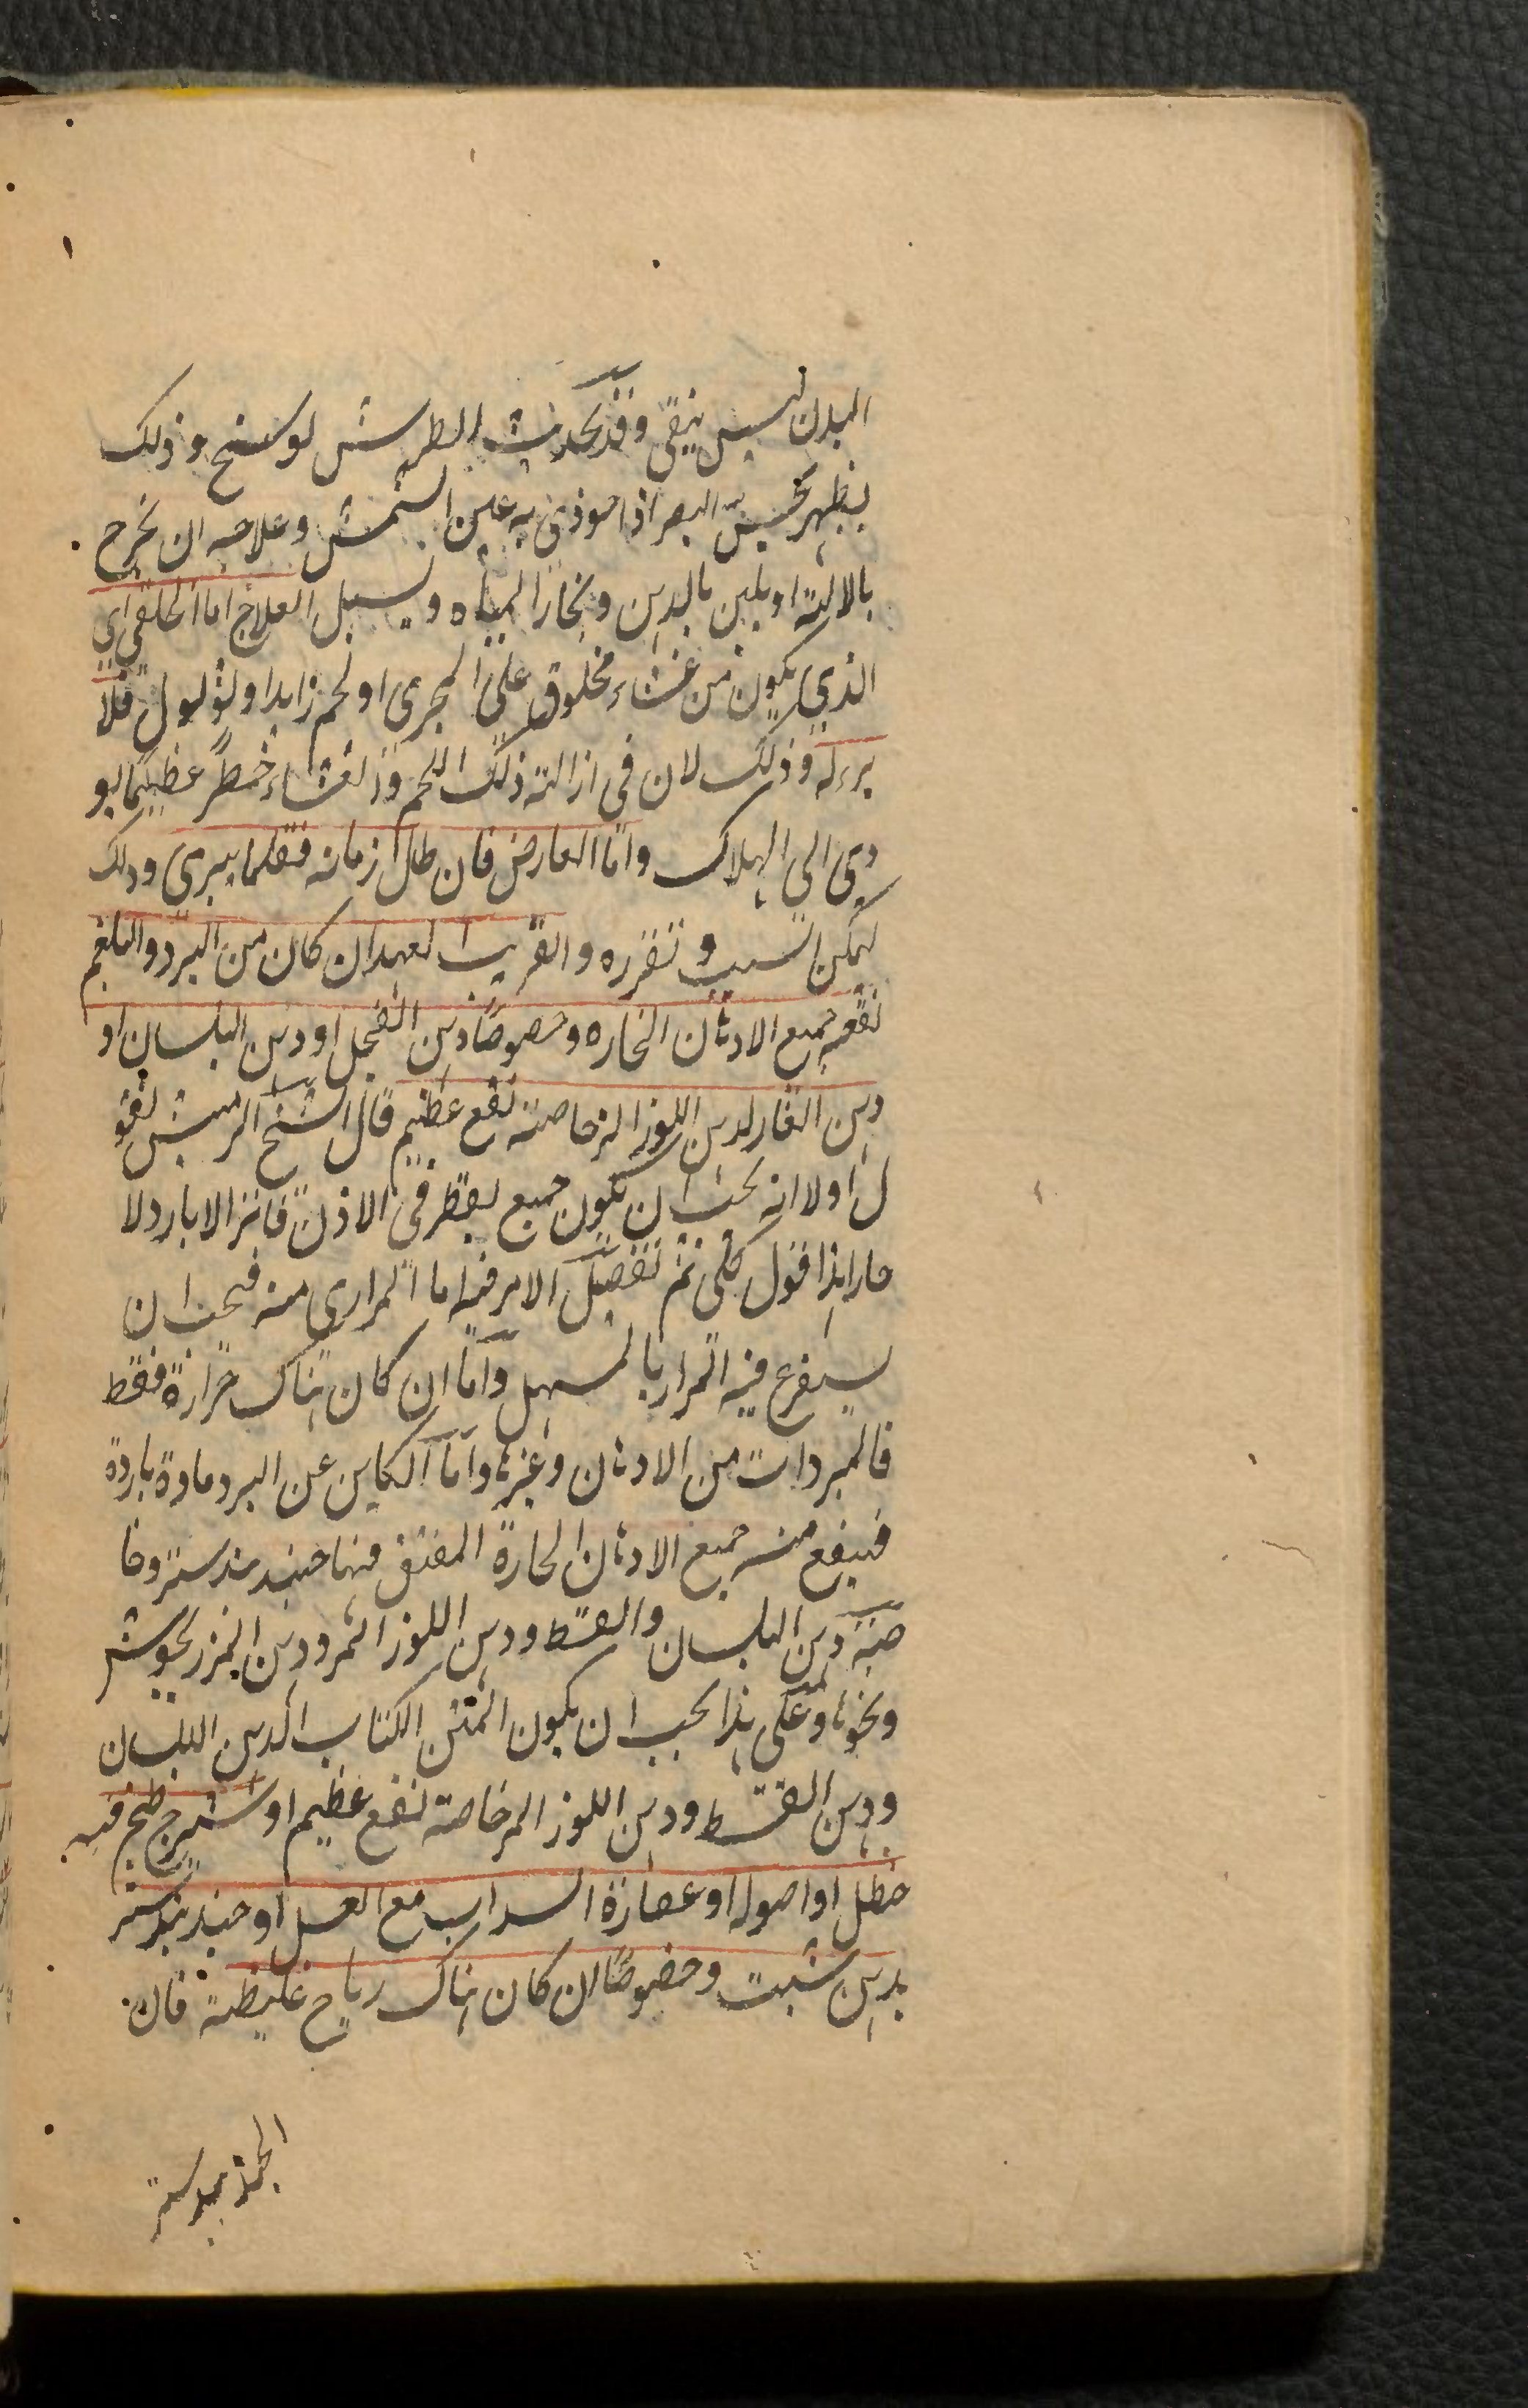 البدن ليس ينقى وقد يحدث الطرش لوسخ وذلك
يظهر بحس البصر اذا حوذي به عين الشمس وعلاجه ان يخرج
بالالة او يلين بالدهن وبخار المياه ويسهل العلاج اما الخلقي اي
الذي يكون من غشاء مخلوق على المجرى او لحم زايد او لثؤلول فلا
برء له وذلك لان في ازالة ذلك اللحم والغشاء خطر عظيما يو
دي الى الهلاك واما العارض فان طال زمانه فقلما يبرى وذلك
لتمكن السبب وتقرره والقريب العهد ان كان من البرد والبلغم
نفعه جميع الادهان الحاره وخصوصا دهن الفجل او دهن البلسان او
دهن الغار لدهن اللوز المر خاصته نفع عظيم قال الشيخ الرئيس نقو
ل اولا انه يجب ان يكون جميع يقطر في الاذن فاتر الا بارد ولا
حار هذا قول كلي ثم تفصيل الامر فيه اما المراري منه فيجب ان
يستفرغ فيه المرار بالمسهل واما ان كان هناك حرارة فقط
فالمبردات من الادهان وغيرها واما الكاين عن البرد مادة باردة
فينفع منه جميع الادهان الحارة المفتق فيها جندبيدستر وخا
صة دهن البلسان والقسط ودهن اللوز المر ودهن المرزنجوش
ونحوها وعلى هذا يجب ان يكون المتن الكتاب الدهن البلسان
ودهن القسط ودهن اللوز المر خاصة نفع عظيم او شيرج طبخ فيه
حنظل او اصوله او عصارة السداب مع العسل او جندبيدستر
بدهن شبت وخصوصا ان كان هناك رياح غليظة فان
الجندبيدستر